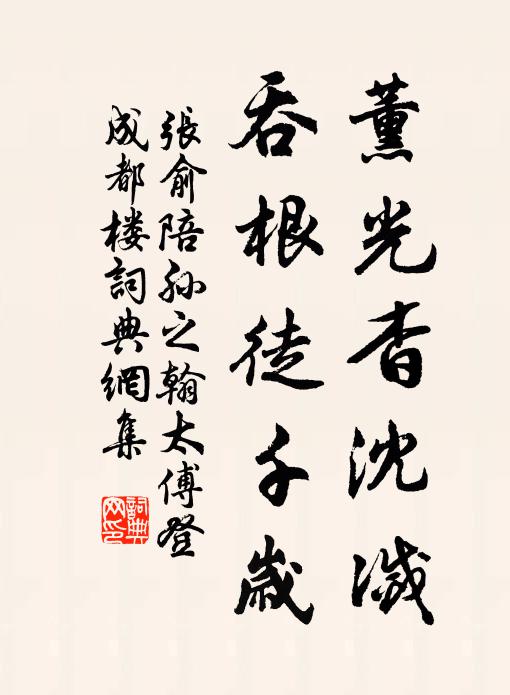 薰光杳沈滅
吞根徒千歲
張俞陪孙之翰太傅登
成都楼詞典網集
詞典网印